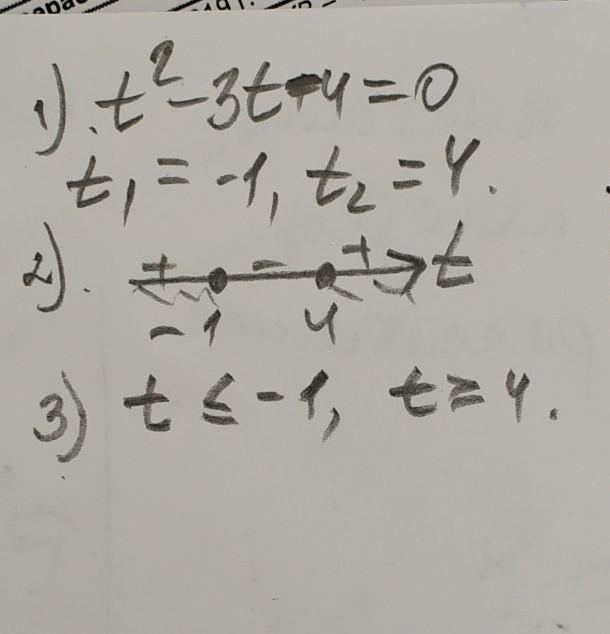 1). t² - 3t - 4 = 0
t₁ = -1, t₂ = 4.
2). + - + t
-1 4
3) t ≤ -1, t ≥ 4.